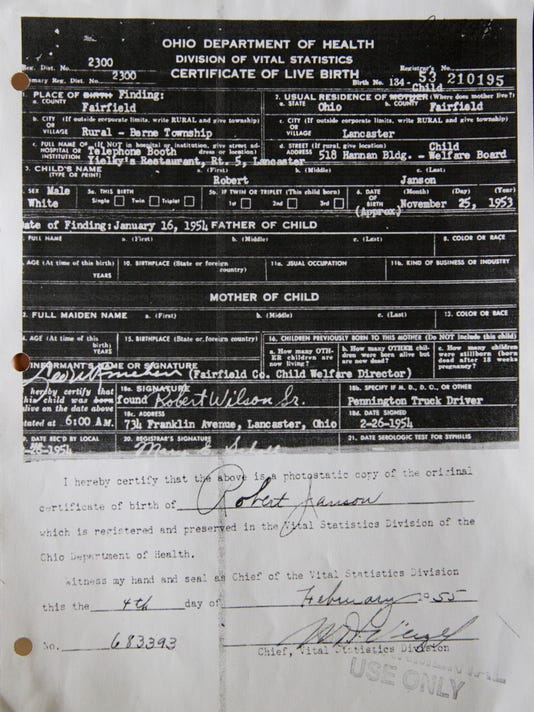 OHIO DEPARTMENT OF HEALTH
DIVISION OF VITAL STATISTICS
CERTIFICATE OF LIVE BIRTH
Reg. Dist. No. 2300
Primary Reg. Dist. No. 2300
Registrar's No.
Birth No. 134- 53 210195
1. PLACE OF BIRTH Finding:
a. COUNTY
Fairfield
Child
2. USUAL RESIDENCE OF MOTHER (Where does mother live?)
a. STATE Ohio b. COUNTY Fairfield
b. CITY (If outside corporate limits, write RURAL and give township)
OR
VILLAGE Rural - Berne Township
c. CITY (If outside corporate limits, write RURAL and give township)
OR
VILLAGE Lancaster
c. FULL NAME OF (If NOT in hospital or institution, give street address or location)
HOSPITAL OR
INSTITUTION Telephone Booth
Yielky's Restaurant, Rt. 5, Lancaster
d. STREET (If rural, give location) Child
ADDRESS 518 Hannan Bldg. - Welfare Board
3. CHILD'S NAME
(TYPE OR PRINT)
a. (First) b. (Middle) c. (Last)
Robert Janson
SEX Male
White
5a. THIS BIRTH
Single Twin Triplet
5b. IF TWIN OR TRIPLET (This child born)
1st 2nd 3rd
6. DATE OF BIRTH (Month) (Day) (Year)
(Approx) November 25, 1953
Date of Finding: January 16, 1954 FATHER OF CHILD
FULL NAME a. (First) b. (Middle) c. (Last) 8. COLOR OR RACE
AGE (At time of this birth)
YEARS
10. BIRTHPLACE (State or foreign country)
11a. USUAL OCCUPATION
11b. KIND OF BUSINESS OR INDUSTRY
MOTHER OF CHILD
FULL MAIDEN NAME a. (First) b. (Middle) c. (Last) 13. COLOR OR RACE
AGE (At time of this birth)
YEARS
15. BIRTHPLACE (State or foreign country)
16. CHILDREN PREVIOUSLY BORN TO THIS MOTHER (Do NOT include this child)
a. How many OTHER children are now living?
b. How many OTHER children were born alive but are now dead?
c. How many children were stillborn (born dead after 18 weeks pregnancy)?
INFORMANT'S NAME OR SIGNATURE
(Fairfield Co. Child Welfare Director)
hereby certify that
this child was born found
alive on the date above
stated at 6:00 A.M.
18a. SIGNATURE
Robert Wilson Sr.
18b. SPECIFY IF M. D., D. O., OR OTHER
Pennington Truck Driver
18c. ADDRESS
734 Franklin Avenue, Lancaster, Ohio
18d. DATE SIGNED
2-26-1954
19. DATE REC'D BY LOCAL
-26-1954
20. REGISTRAR'S SIGNATURE
21. DATE SEROLOGIC TEST FOR SYPHILIS
I hereby certify that the above is a photostatic copy of the original
certificate of birth of Robert Janson
which is registered and preserved in the Vital Statistics Division of the
Ohio Department of Health.
Witness my hand and seal as Chief of the Vital Statistics Division
this the 4th day of February 1955
No. 683393
Chief, Vital Statistics Division
USE ONLY